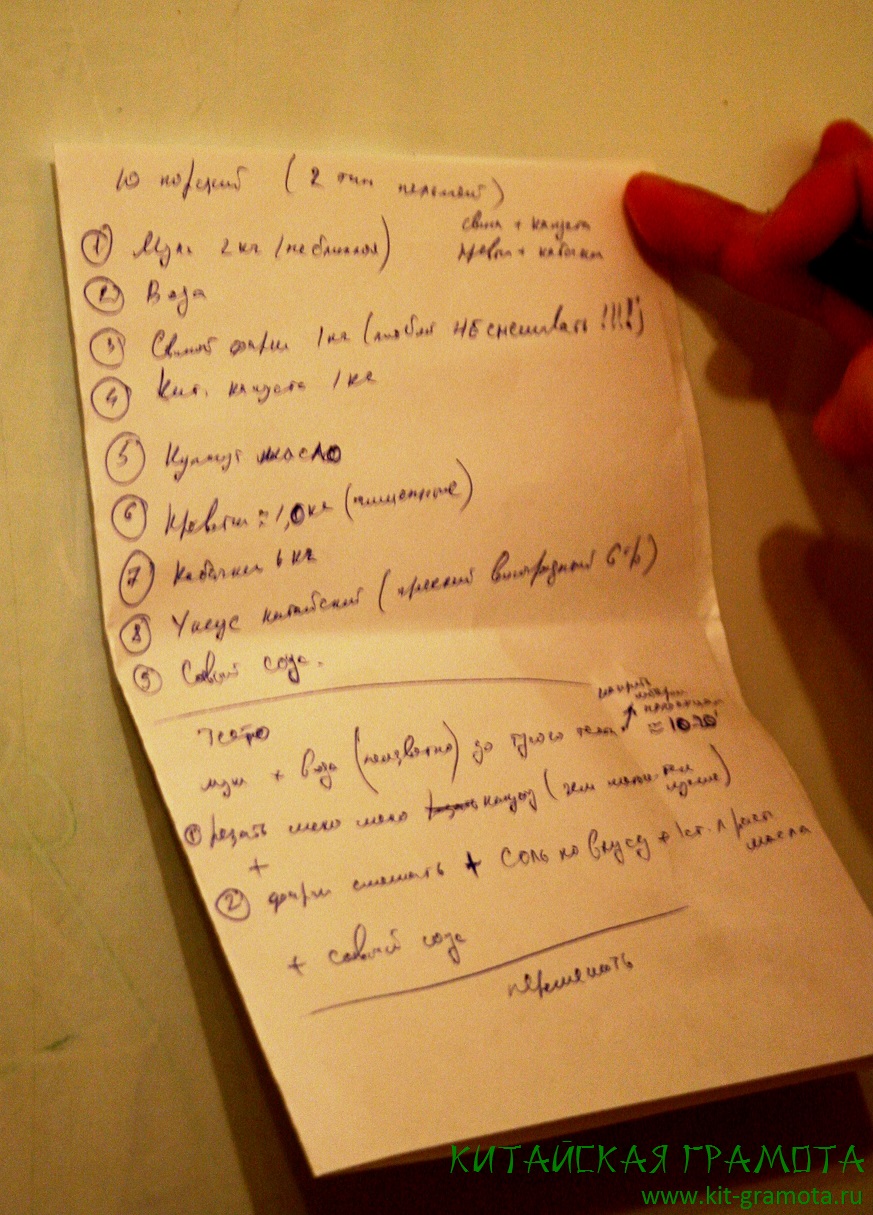 10 порций (2 тип пельмений)
свин + капуста
кревы + кабачки
① Мука 2 кг (не блинная)
② Вода
③ Свиной фарш 1 кг (любой НЕ смешивать !!!!)
④ Кит. капуста 1 кг
⑤ Кунжут масло
⑥ Креветки ≈ 1,0 кг (очищенные)
⑦ Кабачки кг
⑧ Уксус китайский (красный виноградный 6 )
⑨ Соевый соус.
Тесто
накрыть
мука + вода (неизвестно) до густого теста ≈ 10-20'
① резать мелко мелко капусту (чем мельче тем лучше)
+
② фарш смешать + соль по вкусу + 1 ст. л раст масла
+ соевый соус
перемешать
КИТАЙСКАЯ ГРАМОТА
www.kit-gramota.ru